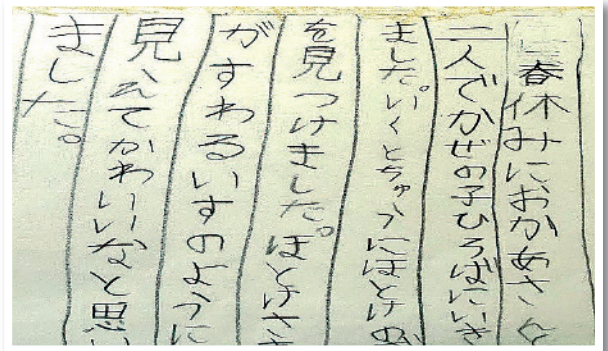 春休みにおかあさん
二人でかぜの子ひろばにいき
ました。いくとちゅうにほとけの
を見つけました。ほとけさ
がすわるいすのように
見えてかわいいなと思い
ました。